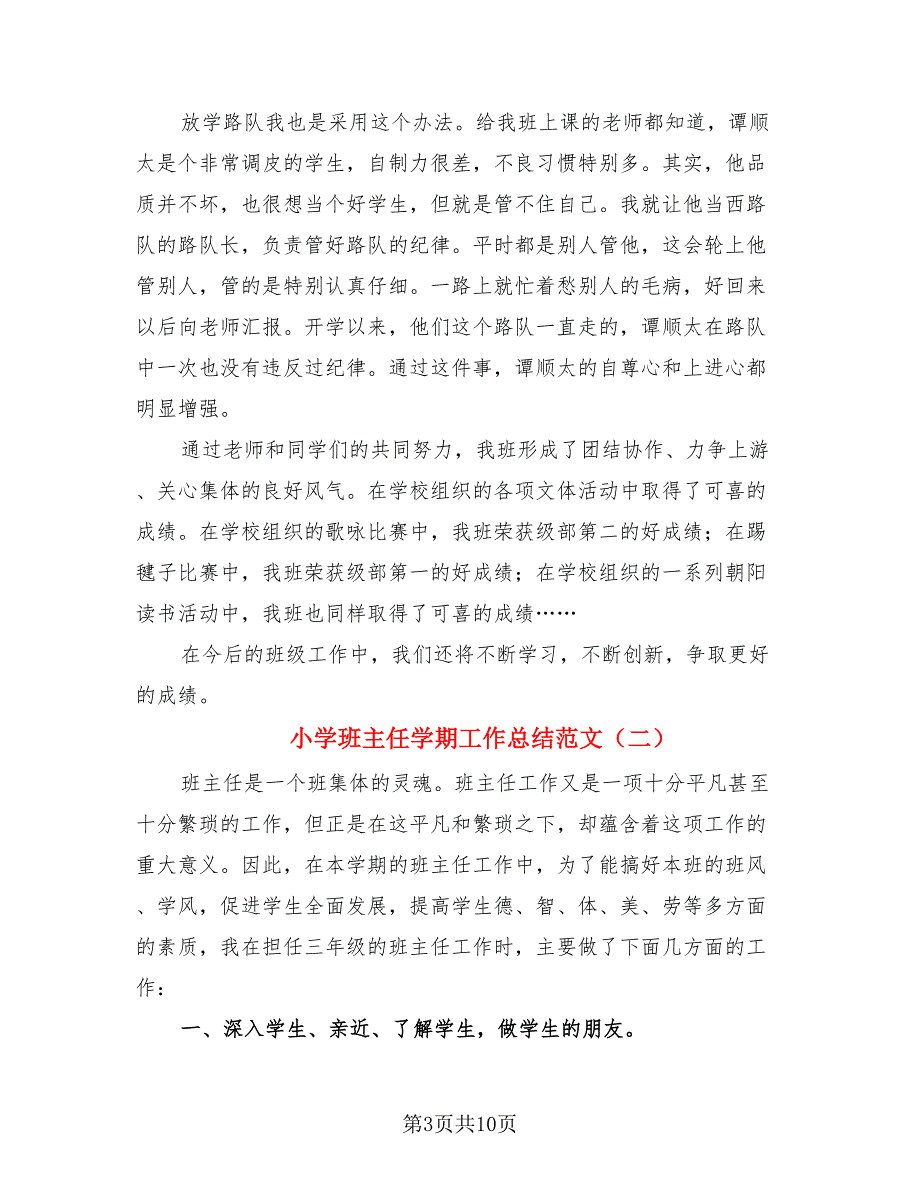 放学路队我也是采用这个办法。给我班上课的老师都知道，谭顺
太是个非常调皮的学生，自制力很差，不良习惯特别多。其实，他品
质并不坏，也很想当个好学生，但就是管不住自己。我就让他当西路
队的路队长，负责管好路队的纪律。平时都是别人管他，这会轮上他
管别人，管的是特别认真仔细。一路上就忙着愁别人的毛病，好回来
以后向老师汇报。开学以来，他们这个路队一直走的，谭顺太在路队
中一次也没有违反过纪律。通过这件事，谭顺太的自尊心和上进心都
明显增强。
通过老师和同学们的共同努力，我班形成了团结协作、力争上游
、关心集体的良好风气。在学校组织的各项文体活动中取得了可喜的
成绩。在学校组织的歌咏比赛中，我班荣获级部第二的好成绩；在踢
毽子比赛中，我班荣获级部第一的好成绩；在学校组织的一系列朝阳
读书活动中，我班也同样取得了可喜的成绩……
在今后的班级工作中，我们还将不断学习，不断创新，争取更好
的成绩。
小学班主任学期工作总结范文（二）
班主任是一个班集体的灵魂。班主任工作又是一项十分平凡甚至
十分繁琐的工作，但正是在这平凡和繁琐之下，却蕴含着这项工作的
重大意义。因此，在本学期的班主任工作中，为了能搞好本班的班风
、学风，促进学生全面发展，提高学生德、智、体、美、劳等多方面
的素质，我在担任三年级的班主任工作时，主要做了下面几方面的工
作：
一、深入学生、亲近、了解学生，做学生的朋友。
第3页共10页